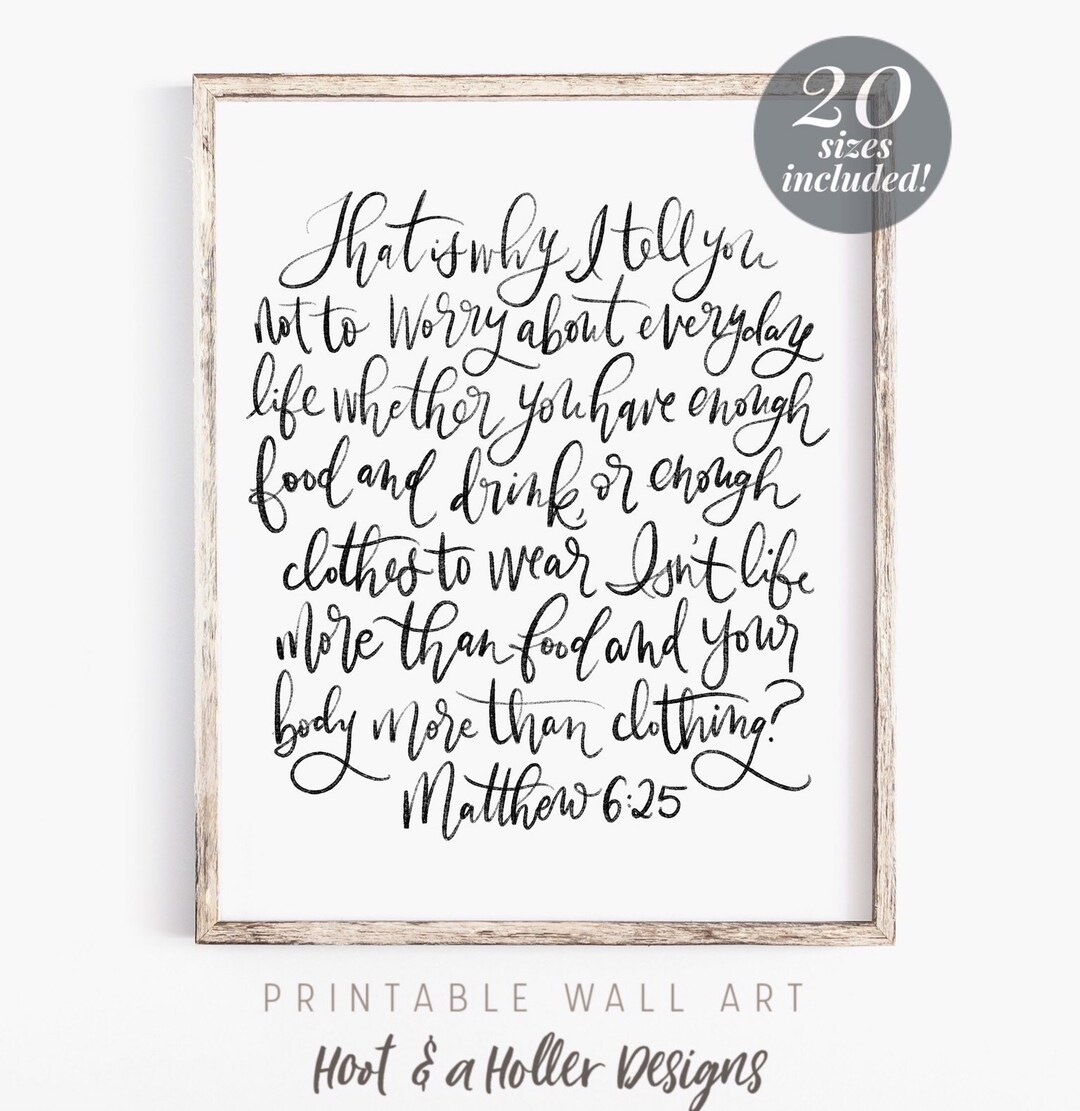 20
sizes
included!
That is why I tell you
not to worry about everyday
life whether you have enough
food and drink, or enough
clothes to wear Isn't life
more than food and your
body more than clothing?
Matthew 6:25
PRINTABLE WALL ART
Hoot & a Holler Designs